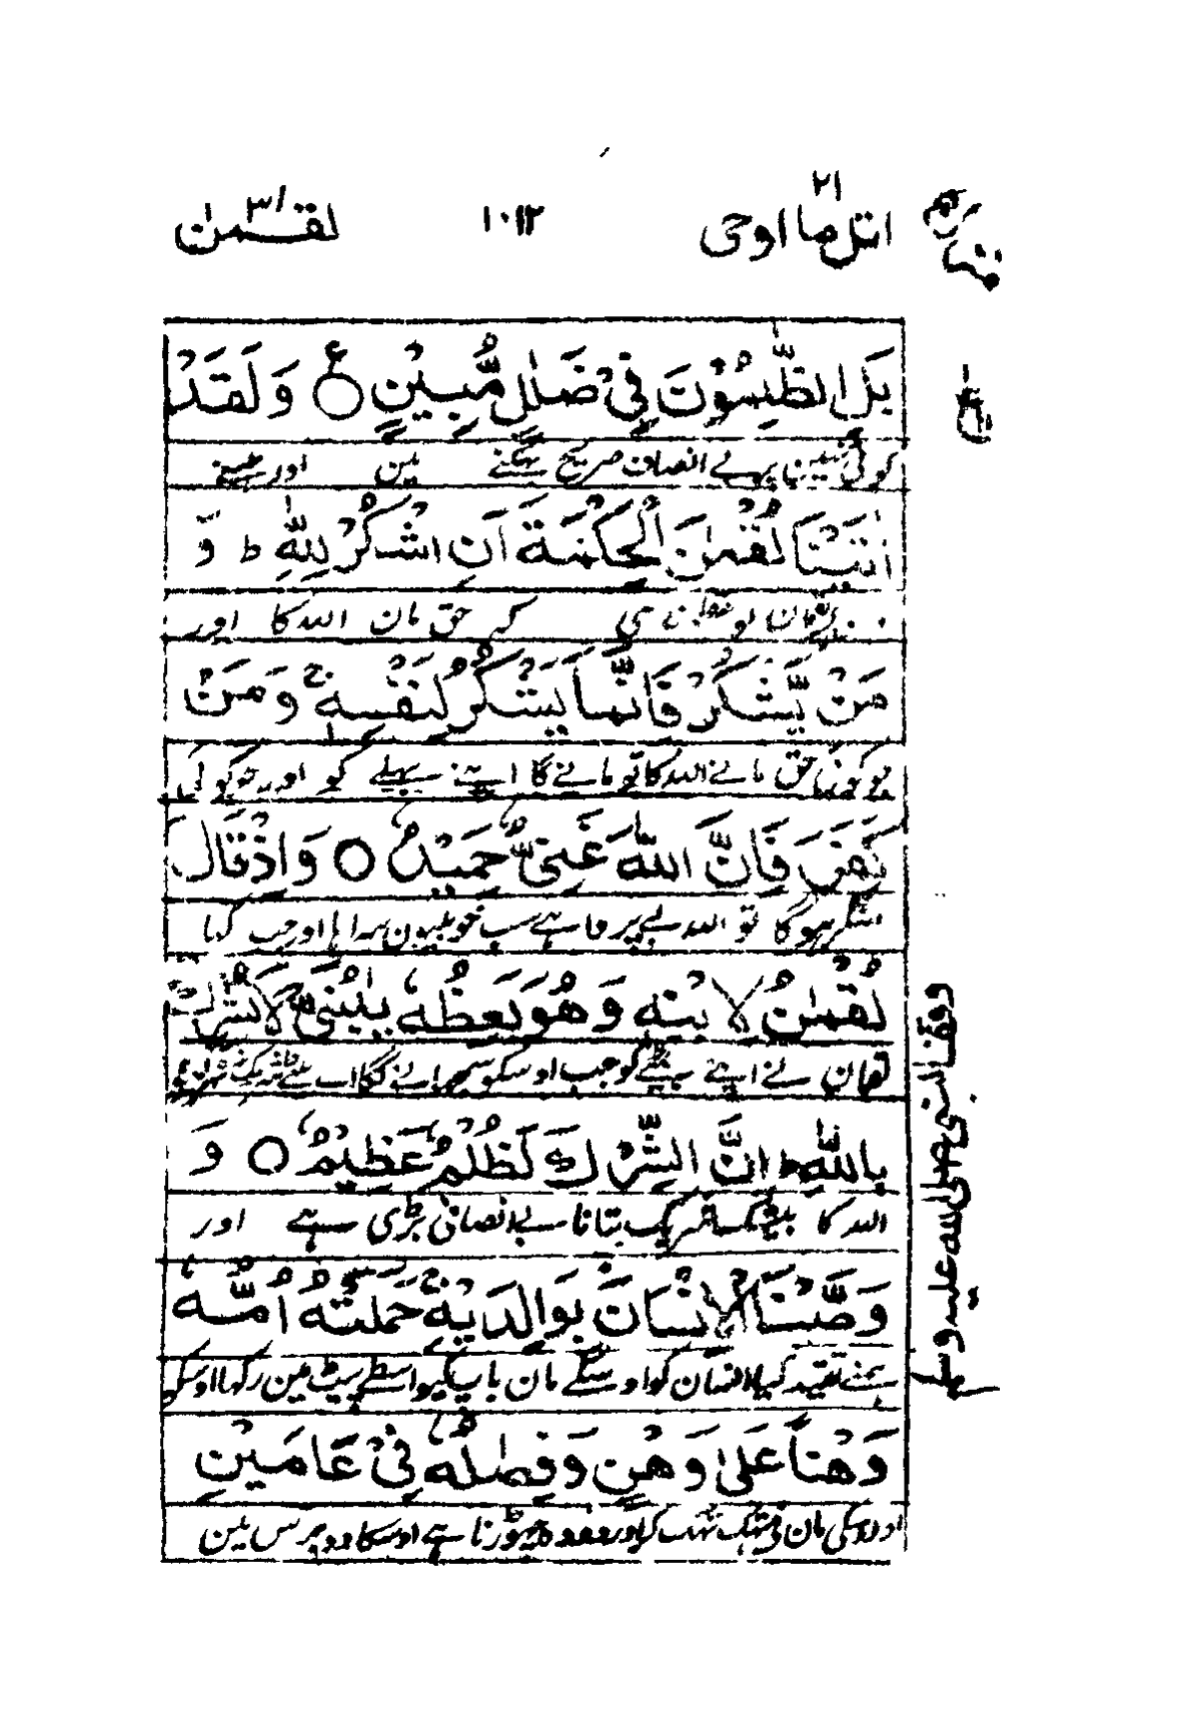 اتل ما اوحی ۲۱
۱۰۱۲
لقمٰن ۳۱
بَلِ الظّٰلِمُوْنَ فِیْ ضَلٰلٍ مُّبِیْنٍ ○ ع وَ لَقَدْ
کوئی نہین پر بے انصاف صریح بھٹکنے مین اور ہمنے
اٰتَیْنَا لُقْمٰنَ الْحِكْمَةَ اَنِ اشْكُرْ لِلّٰهِ ط وَ
دی کہ حق مان اللہ کا اور
مَنْ یَّشْكُرْ فَاِنَّمَا یَشْكُرُ لِنَفْسِهٖ ج وَ مَنْ
جو کوئی حق مانے اللہ کا تو مانے گا اپنے بھلے کو اور جو کوئی
كَفَرَ فَاِنَّ اللّٰهَ غَنِیٌّ حَمِیْدٌ ○ وَ اِذْ قَالَ
منکر ہوگا تو اللہ بے پروا ہے سب خوبیون سراہا اور جب کہا
لُقْمٰنُ لِابْنِهٖ وَ هُوَ یَعِظُهٗ یٰبُنَیَّ لَا تُشْرِكْ
لقمان نے اپنے بیٹے کو جب اوسکو سمجھانے لگا اے بیٹے شریک نہ ٹھرائیو
بِاللّٰهِ ط اِنَّ الشِّرْكَ لَظُلْمٌ عَظِیْمٌ ○ وَ
اللہ کا بیشک شریک بنانا بے انصافی بڑی ہے اور
وَصَّیْنَا الْاِنْسَانَ بِوَالِدَیْهِ ج حَمَلَتْهُ اُمُّهٗ
ہمنے تقید کیا انسان کو اوسکے مان باپ کیواسطے پیٹ مین رکھا اوسکو
وَهْنًا عَلٰی وَهْنٍ وَّ فِصٰلُهٗ فِیْ عَامَیْنِ
اوسکی مان نے تھک تھک کر اور دودھ چھوڑنا ہے اوسکا دو برس مین
وقف النبی صلی الله علیه وسلم